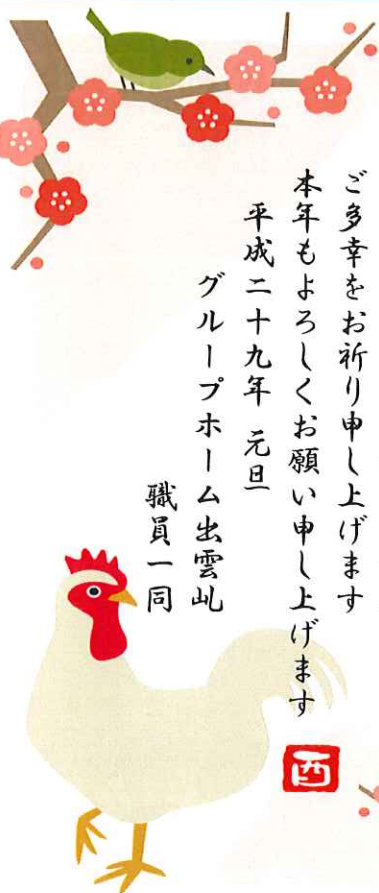 ご多幸をお祈り申し上げます
本年もよろしくお願い申し上げます
平成二十九年 元旦
グループホーム出雲乢
職員一同
酉